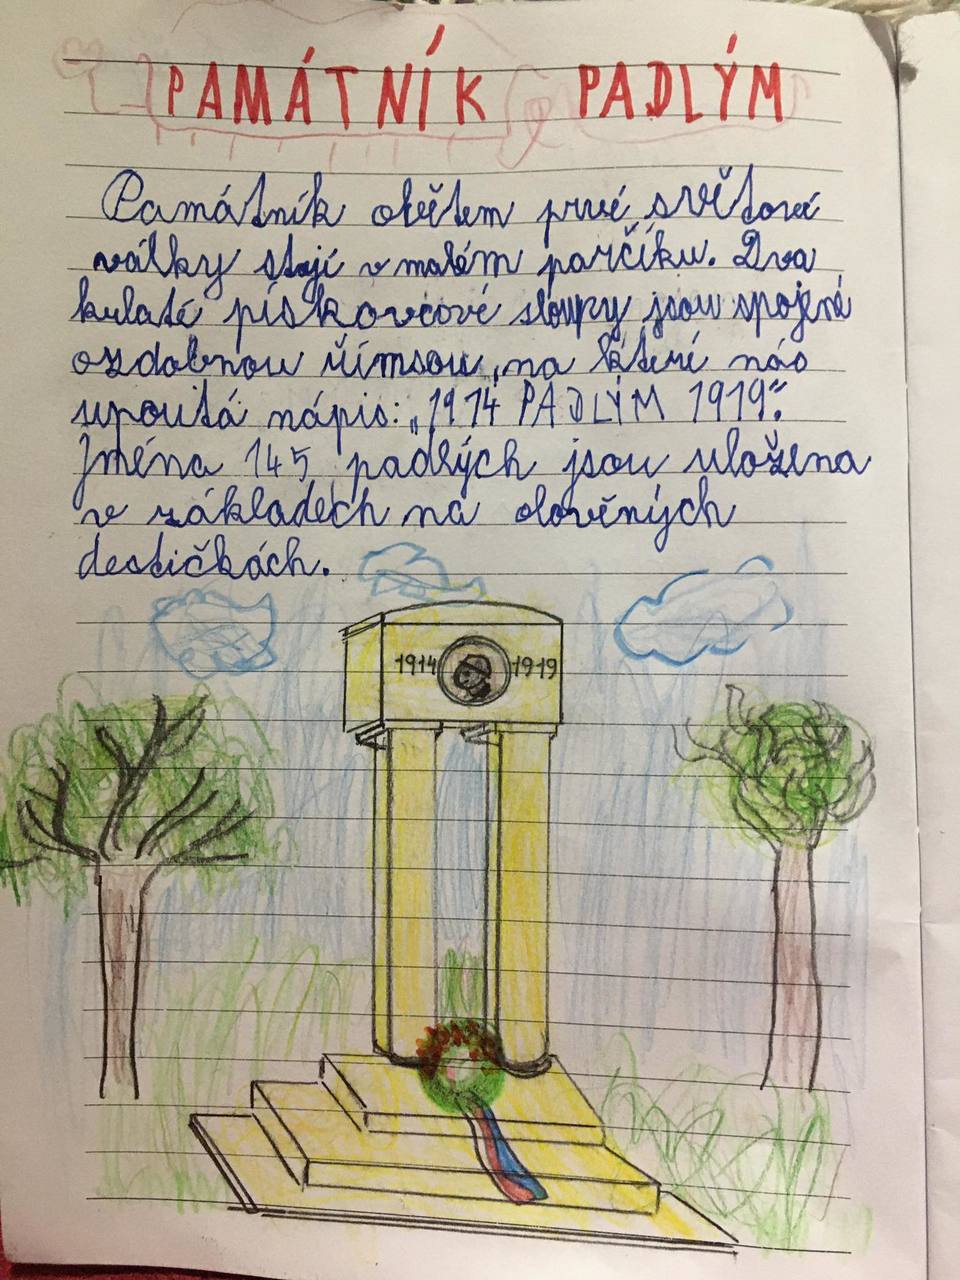 PAMÁTNÍK PADLÝM
Památník obětem prvé světové
války stojí v malém parčíku. Dva
kulaté pískovcové sloupy jsou spojené
ozdobnou římsou, na které nás
upoutá nápis: „1914 PADLÝM 1919“.
Jména 145 padlých jsou uložena
v základech na olověných
destičkách.
1914 1919